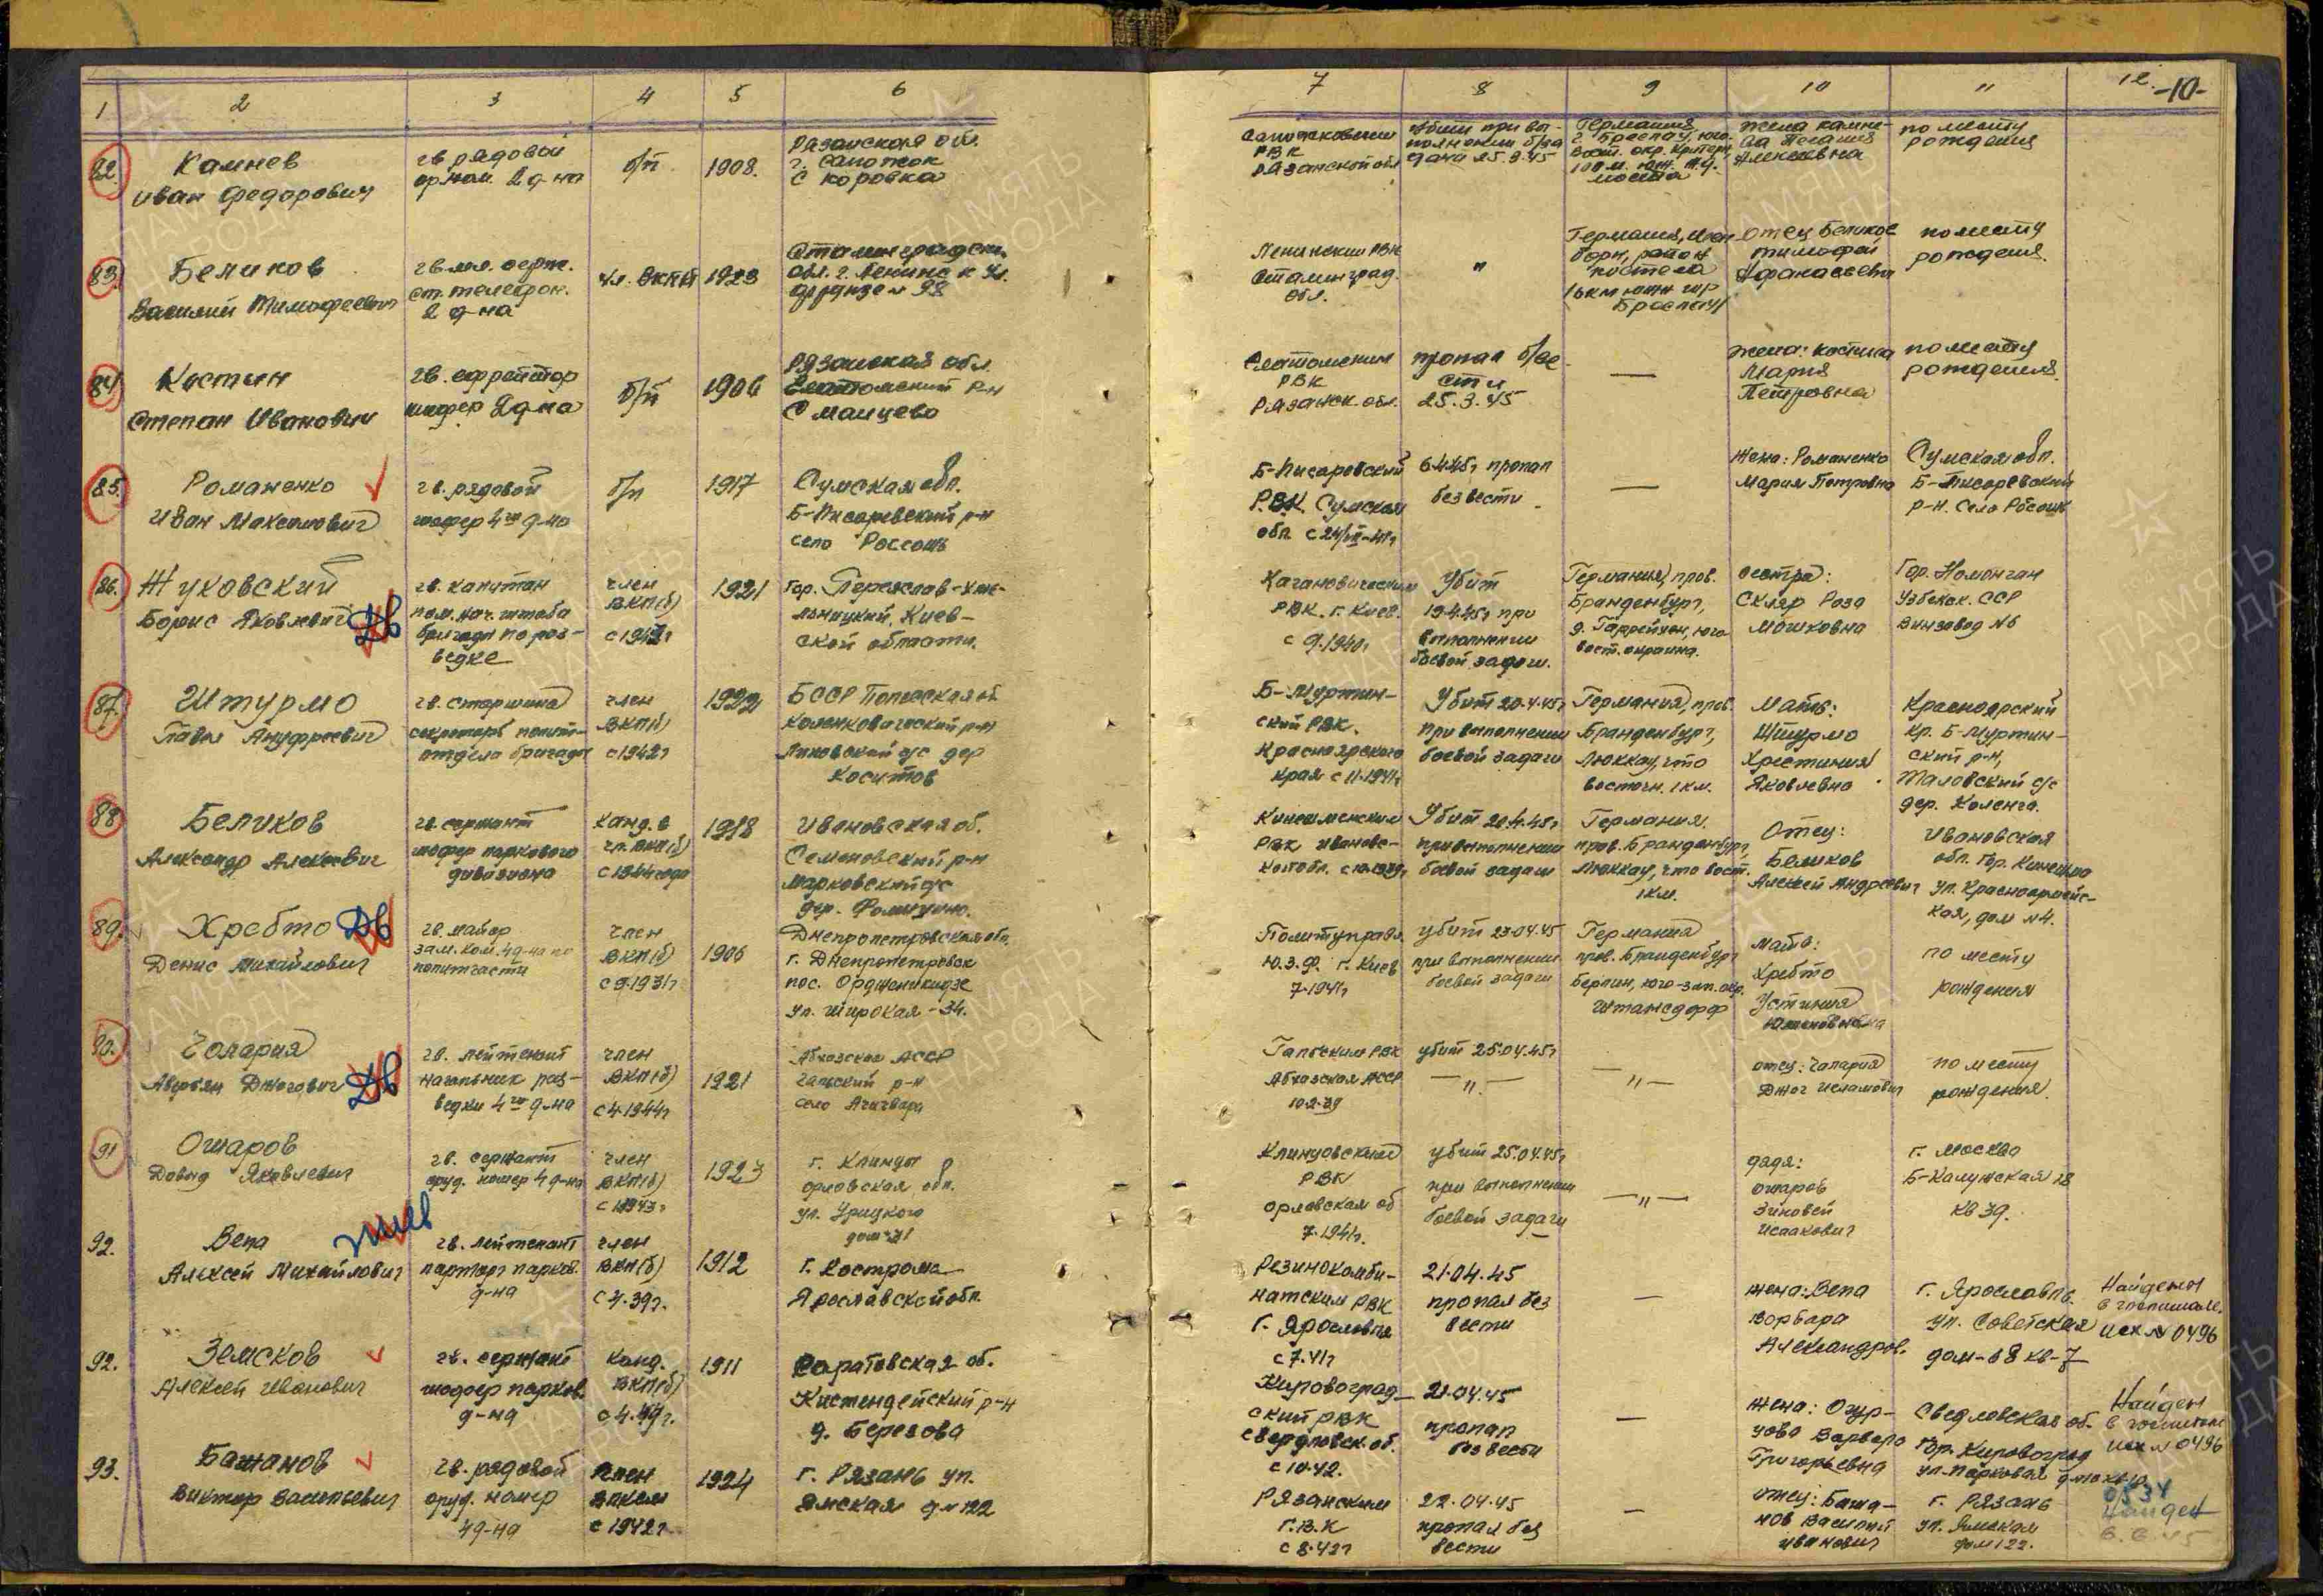 1 2 3 4 5 6 7 8 9 10 11 12. -10-
82. Камнев
Иван Федорович
гв рядовой
2 д-на
б/п
1908.
Рязанская обл.
г. Сапожок
с Коровка
Сапожковским
РВК
Рязанской обл
убит при вы-
полнении б/за
дачи 25.3.45
Германия
г. Бреслау, юго
100 м. юж. ж.д.
моста
жена Камне-
ва Пелагия
Алексеевна
по месту
рождения
83. Беликов
Василий Тимофеевич
гв мл. серж.
ст. телефон.
2 д-на
чл. ВКПб
1923
Сталинградск.
обл. г. Ленинс к ул.
Фрунзе № 98
Ленинским РВК
Сталинград.
обл.
"
Германия,
район
костела
юж гор
Бреслау
отец Беликов
Тимофей
Афанасьевич
по месту
рождения.
84. Костин
Степан Иванович
гв. ефрейтор
шофер 2 д-на
б/п
1906
Рязанская обл.
Елатомский р-н
С Манцево
Елатомским
РВК
Рязанск. обл.
пропал б/ве
сти
25.3.45
—
жена: Костина
Мария
Петровна
по месту
рождения.
85. Романенко
Иван Максимович
гв. рядовой
шофер 4го д-на
б/п
1917
Сумская обл.
Б-Писаревский р-н
село Россошь
Б-Писаровский
РВК Сумская
обл. с 24/
6.4.45г пропал
без вести
—
жена: Романенко
Мария Петровна
Сумская обл.
Б-Писаревский
р-н. село
86. Жуковский
Борис Яковлевич
гв. капитан
пом. нач. штаба
бригады по раз-
ведке
член
ВКП(б)
с 1943г
1921
Гор. Переяслав-Хме-
льницкий, Киев-
ской области.
Кагановическим
РВК. г. Киев.
с 9.1940г
Убит
19.4.45г при
выполнении
боевой задачи.
Германия, пров.
Бранденбург,
юго
вост. окраина.
сестра:
Скляр Роза
Мошковна
Гор. Наманган
Узбекск. ССР
Винзавод №6
87. Штурмо
Павел Ануфреевич
гв. старшина
секретарь полит-
отдела бригады
член
ВКП(б)
с 1942г
1922
БССР Полесская об
Каленковичский р-н
с/с дер
Коситов
Б-Муртин-
ский РВК.
Красноярского
края с 11.1941г
Убит 20.4.45г
при выполнении
боевой задачи
Германия, пров.
Бранденбург,
Люккау, что
восточн. 1 км.
Мать:
Штурмо
Христиния
Яковлевна
Красноярский
кр. Б-Муртин-
ский р-н,
Таловский с/с
дер. Коленго.
88 Беликов
Александр Алексеевич
гв. сержант
шофер паркового
дивизиона
канд. в
чл. ВКП(б)
с 1944 года
1918
Ивановская об.
Семеновский р-н
Марковский с/с
Кинешемским
РВК Ивановс-
Убит 20.4.45г
при выполнении
боевой задачи
Германия.
пров. Бранденбург,
Люккау, что вост.
1 км.
Отец:
Беликов
Алексей Андреевич
Ивановская
обл. гор. Кинешма
ул. Красноармейс-
кая, дом №4.
89. Хребто
Денис Михайлович
гв. майор
зам. ком. 4 д-на по
политчасти
член
ВКП(б)
с 9.1931г
1906
Днепропетровская обл.
г. Днепропетровск
пос. Орджоникидзе
ул. Широкая - 34.
Политуправл.
Ю.З.Ф. г. Киев
7.1941г
убит 23.04.45
при выполнении
боевой задачи
Германия
пров. Бранденбург
Берлин, юго-зап. окр.
Штансдорф
мать:
Хребто
Устиния
по месту
рождения
90. Чолария
гв. лейтенант
начальник раз-
ведки 4го д-на
член
ВКП(б)
с 4.1944г
1921
Абхазская АССР
Гальский р-н
село Ачигвара
Гальским РВК
Абхазская АССР
10.2.39
убит 25.04.45г
—"—
—"—
отец: Чолария
Джог Исламович
по месту
рождения.
91 Ошаров
Давид Яковлевич
гв. сержант
оруд. номер 4 д-на
член
ВКП(б)
с 1943г
1923
г. Клинцы
орловская обл.
ул. Урицкого
Клинцовский
РВК
орловская об
7.1941г.
убит 25.04.45г
при выполнении
боевой задачи
—"—
дядя:
Ошаров
Зиновей
Исаакович
г. Москва
Б-Калужская 18
кв 39.
92. Вепа
Алексей Михайлович
жив
гв. лейтенант
парторг парков.
д-на
член
ВКП(б)
с 4.39г.
1912
г. Кострома
Ярославской обл.
Резинокомби-
натским РВК
г. Ярославля
с 7.41г
21.04.45
пропал без
вести
—
жена: Вепа
Варвара
Александров.
г. Ярославль.
ул. Советская
дом-68 кв-7
Найден
в госпитале.
исх. № 0496
92. Земсков
Алексей Иванович
гв. сержант
шофер парков.
д-на
канд.
ВКП(б)
с 4.44г.
1911
Саратовская об.
Кистендейский р-н
д. Березова
Кировоград-
ский РВК
Свердловск. об.
с 10.42.
21.04.45
пропал
без вести
—
жена: Огур-
цова Варвара
Григорьевна
Свердловская об.
Гор. Кировоград
ул. Парковая
Найден
в госпитале
исх № 0496
93. Бажанов
Виктор Васильевич
гв. рядовой
оруд. номер
4 д-на
член
ВЛКСМ
с 1942г.
1924
г. Рязань ул.
Ямская д № 122
Рязанским
Г.В.К
с 8.42г
22.04.45
пропал без
вести
—
отец: Бажа-
нов Василий
Иванович
г. Рязань
ул. Ямская
дом 122.
0534
Найден
6.6.45